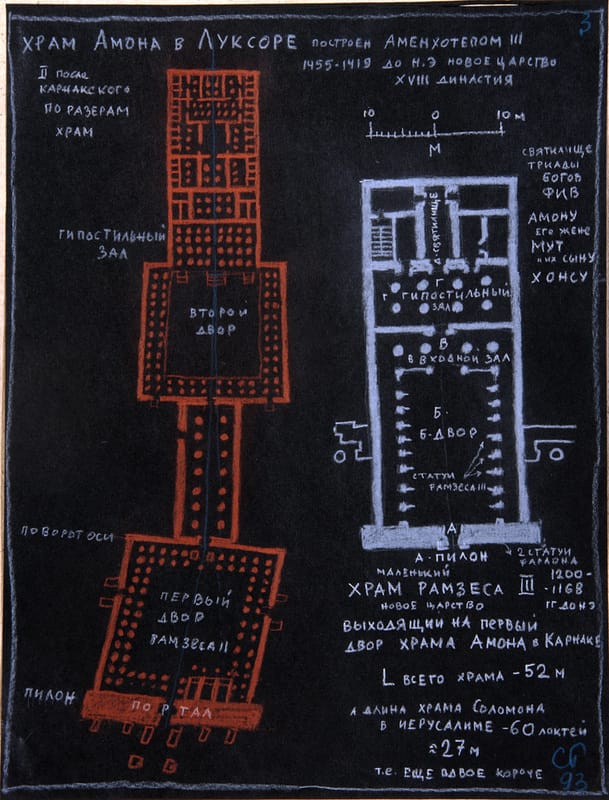 3
ХРАМ АМОНА В ЛУКСОРЕ ПОСТРОЕН АМЕНХОТЕПОМ III
1455-1419 ДО Н.Э НОВОЕ ЦАРСТВО
XVIII ДИНАСТИЯ
II ПОСЛЕ
КАРНАКСКОГО
ПО РАЗЕРАМ
ХРАМ
ГИПОСТИЛЬНЫЙ
ЗАЛ
ВТОРОЙ
ДВОР
ПОВОРОТ ОСИ
ПЕРВЫЙ
ДВОР
РАМЗЕСА II
ПИЛОН
ПОРТАЛ
10 0 10 м
М
СВЯТИЛИЩЕ
ТРИАДЫ
БОГОВ
ФИВ
АМОНУ
ЕГО ЖЕНЕ
МУТ
И ИХ СЫНУ
ХОНСУ
Г
Г ГИПОСТИЛЬНЫЙ
ЗАЛ
В
В ВХОДНОЙ ЗАЛ
Б.
Б-ДВОР
СТАТУИ
РАМЗЕСА III
А
А-ПИЛОН
2 СТАТУИ
ФАРАОНА
МАЛЕНЬКИЙ
ХРАМ РАМЗЕСА III 1200-
-1168
НОВОЕ ЦАРСТВО ГГ ДО НЭ
ВЫХОДЯЩИЙ НА ПЕРВЫЙ
ДВОР ХРАМА АМОНА В КАРНАКЕ
L ВСЕГО ХРАМА -52 М
А ДЛИНА ХРАМА СОЛОМОНА
В ИЕРУСАЛИМЕ -60 ЛОКТЕЙ
≈27 М
Т.Е. ЕЩЕ ВДВОЕ КОРОЧЕ
СГ
93